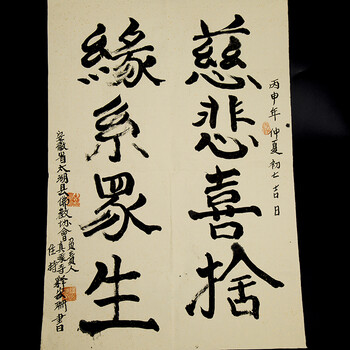 丙申年仲夏初七吉日
慈悲喜捨
緣系眾生
安徽省太湖县佛教协會負責人
真乘寺住持釋
書